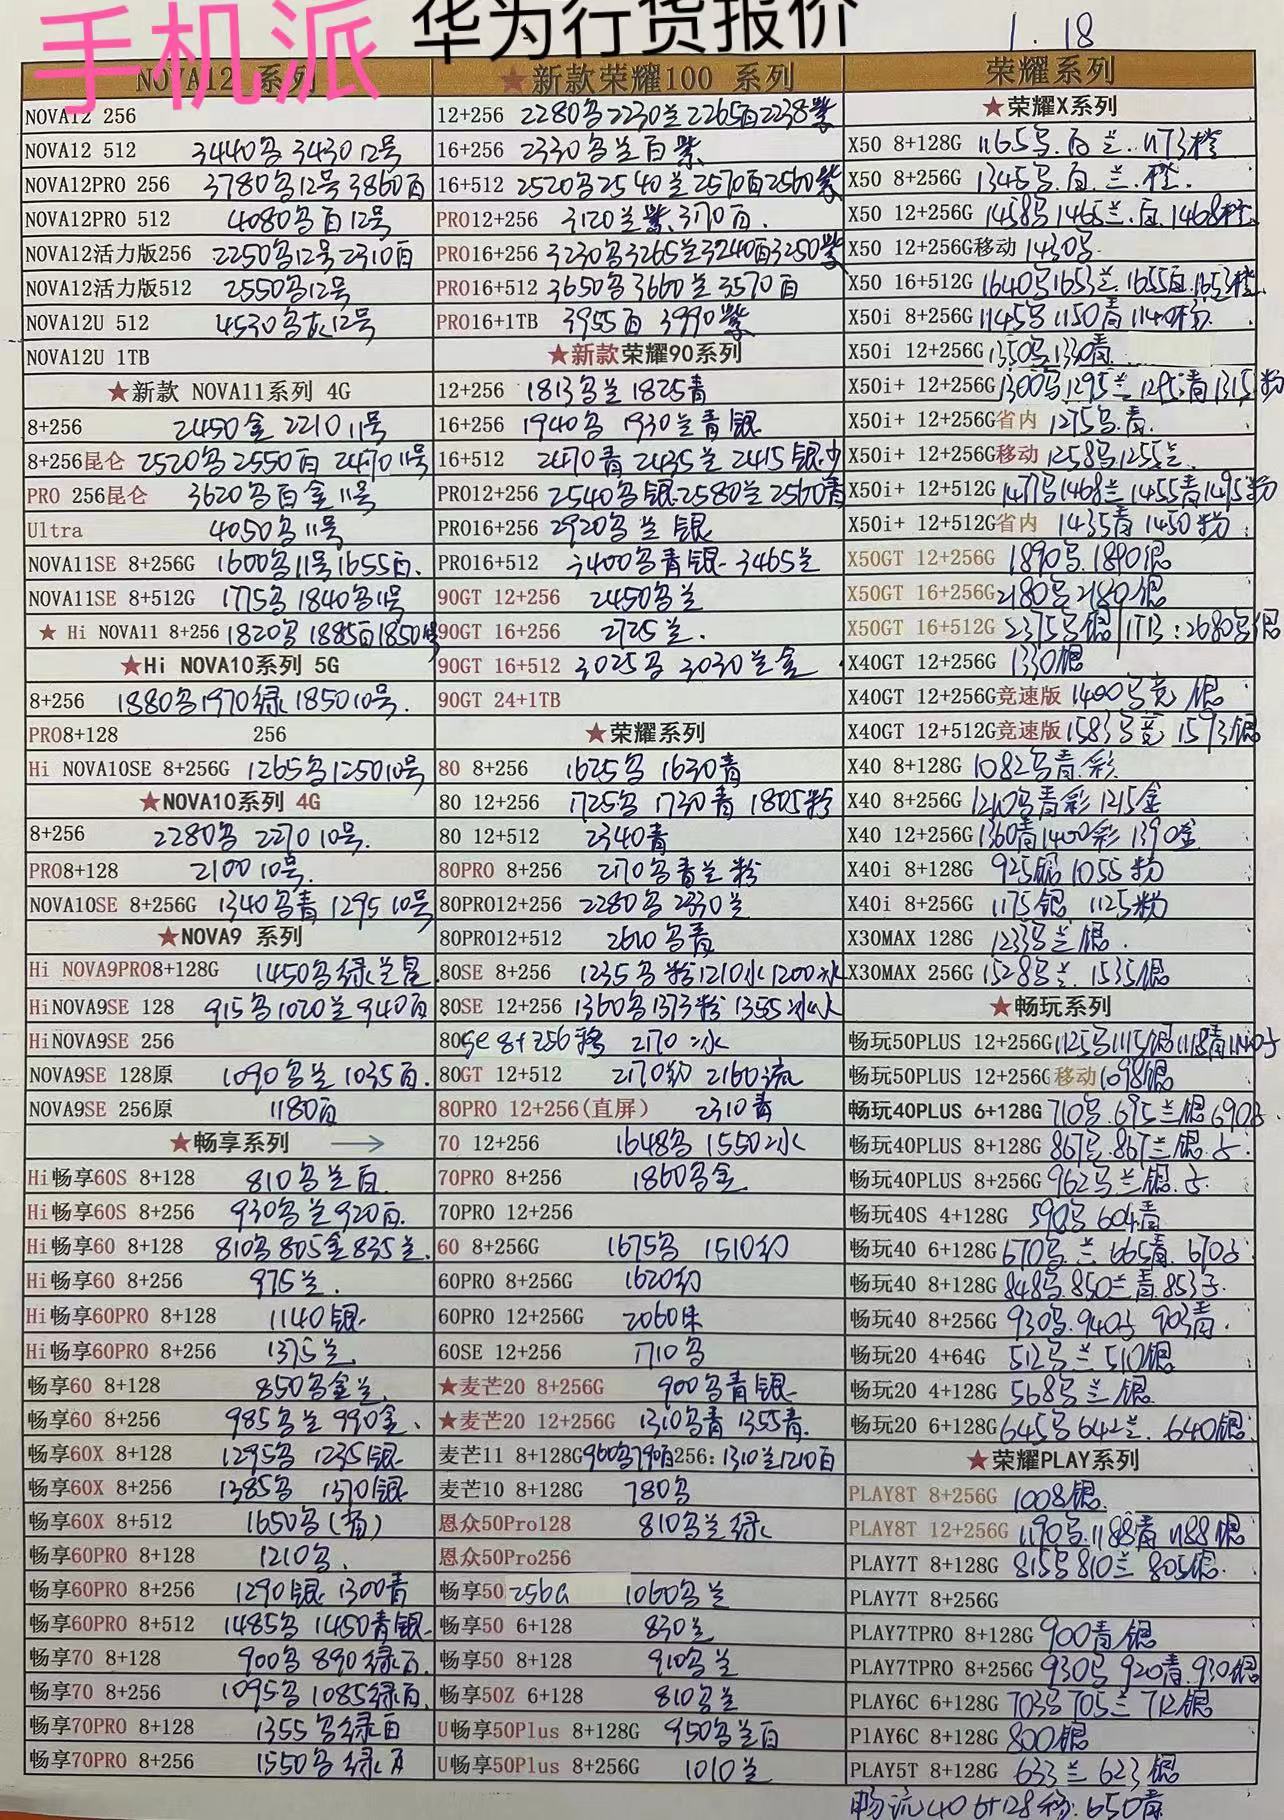 手机派 华为行货报价 1.18
NOVA12 系列
NOVA12 256
NOVA12 512 3440乌 3430 12号
NOVA12PRO 256 3780乌12号 3860白
NOVA12PRO 512 4080乌白12号
NOVA12活力版256 2250乌12号2310白
NOVA12活力版512 2550乌12号
NOVA12U 512 4530乌 12号
NOVA12U 1TB
★新款 NOVA11系列 4G
8+256 2450金 2210 11号
8+256昆仑 2520乌2550白 2470 11号
PRO 256昆仑 3620乌白金 11号
Ultra 4050乌11号
NOVA11SE 8+256G 1600乌11号1655白.
NOVA11SE 8+512G 1775乌 1840乌11号
★ Hi NOVA11 8+256 1820乌 1885白1850
★Hi NOVA10系列 5G
8+256 1880乌1970绿 1850 10号.
PRO8+128 256
Hi NOVA10SE 8+256G 1265乌1250 10号
★NOVA10系列 4G
8+256 2280乌 2270 10号.
PRO8+128 2100 10号.
NOVA10SE 8+256G 1340乌青 1295 10号
★NOVA9 系列
Hi NOVA9PRO8+128G 1450乌绿兰星
HiNOVA9SE 128 915乌1020兰940白
HiNOVA9SE 256
NOVA9SE 128原 1090乌兰 1035白.
NOVA9SE 256原 1180白
★畅享系列 →
Hi畅享60S 8+128 810乌兰白
Hi畅享60S 8+256 930乌兰920白.
Hi畅享60 8+128 810乌805金835兰.
Hi畅享60 8+256 975兰.
Hi畅享60PRO 8+128 1140银
Hi畅享60PRO 8+256 1375兰
畅享60 8+128 850乌金兰
畅享60 8+256 985乌兰 990金.
畅享60X 8+128 1295乌 1235银
畅享60X 8+256 1385乌 1370银
畅享60X 8+512 1650乌(有)
畅享60PRO 8+128 1210乌.
畅享60PRO 8+256 1290银 1300青
畅享60PRO 8+512 1485乌 1450青银
畅享70 8+128 900乌 890绿白
畅享70 8+256 1095乌1085绿白.
畅享70PRO 8+128 1355乌绿白
畅享70PRO 8+256 1550乌绿白
★新款荣耀100 系列
12+256 2280乌2230兰2265白2238紫
16+256 2330乌兰白紫
16+512 2520乌2540兰2570白2560紫
PRO12+256 3120兰紫.3170白.
PRO16+256 3230乌3265兰3240白3250紫
PRO16+512 3650乌3660兰3570白
PRO16+1TB 3955白 3990紫
★新款荣耀90系列
12+256 1813乌兰 1825青
16+256 1940乌 1930兰青银
16+512 2470青 2435兰 2415银少
PRO12+256 2540乌银2580兰2560青
PRO16+256 2920乌兰银
PRO16+512 3400乌青银 3465兰
90GT 12+256 2450乌兰
90GT 16+256 2725兰.
90GT 16+512 3025乌 3030兰金
90GT 24+1TB
★荣耀系列
80 8+256 1625乌 1630青
80 12+256 1725乌 1730青 1805粉
80 12+512 2340青
80PRO 8+256 2170乌青兰粉
80PRO12+256 2280乌2330兰
80PRO12+512 2610乌青
80SE 8+256 1235乌粉1210水1200冰
80SE 12+256 1360乌1373粉1355冰水
80se 8+256移 2170冰
80GT 12+512 2170幻 2160流
80PRO 12+256(直屏) 2310青
70 12+256 1648乌 1550冰
70PRO 8+256 1860乌金
70PRO 12+256
60 8+256G 1675乌 1510幻
60PRO 8+256G 1620幻
60PRO 12+256G 2060朱
60SE 12+256 1710乌
★麦芒20 8+256G 900乌青银
★麦芒20 12+256G 1310乌青 1355青.
麦芒11 8+128G 960乌790白256:1310兰1210白
麦芒10 8+128G 780乌
恩众50Pro128 810乌兰绿
恩众50Pro256
畅享50 256G 1060乌兰
畅享50 6+128 830兰
畅享50 8+128 910乌兰
畅享50Z 6+128 810乌兰
U畅享50Plus 8+128G 950乌兰白
U畅享50Plus 8+256G 1010兰
荣耀系列
★荣耀X系列
X50 8+128G 1165乌.白兰.1173橙
X50 8+256G 1345乌.白.兰.橙.
X50 12+256G 1458乌1465兰.白.1468橙
X50 12+256G移动 1430乌
X50 16+512G 1640乌1653兰.1655白.1653橙
X50i 8+256G 1145乌1150青1140粉
X50i 12+256G 1350乌1330青
X50i+ 12+256G 1300乌1295兰1295青1315粉
X50i+ 12+256G省内 1275乌.青.
X50i+ 12+256G移动 1258乌1255兰
X50i+ 12+512G 1477乌1468兰1455青1495粉
X50i+ 12+512G省内 1435青1450粉
X50GT 12+256G 1890乌.1890银
X50GT 16+256G 2180乌2180银
X50GT 16+512G 2375乌银 1TB:2680乌银
X40GT 12+256G 1330银
X40GT 12+256G竞速版 1400乌竞 银
X40GT 12+512G竞速版 1583乌竞 1593银
X40 8+128G 1082乌青.彩.
X40 8+256G 1210乌青彩1215金
X40 12+256G 1360青1400彩1390金
X40i 8+128G 925银1055粉
X40i 8+256G 1175银 1125粉
X30MAX 128G 1233乌兰银.
X30MAX 256G 1528乌兰.1535银
★畅玩系列
畅玩50PLUS 12+256G 1125乌1115银1118青1140子
畅玩50PLUS 12+256G移动 1098银
畅玩40PLUS 6+128G 710乌.695兰银690子.
畅玩40PLUS 8+128G 867乌.867兰银.子.
畅玩40PLUS 8+256G 962乌兰银.子.
畅玩40S 4+128G 590乌604青
畅玩40 6+128G 670乌.兰 665青.670子.
畅玩40 8+128G 848乌.850兰青.853子.
畅玩40 8+256G 930乌.940子 903青.
畅玩20 4+64G 512乌兰510银
畅玩20 4+128G 568乌兰银.
畅玩20 6+128G 645乌642兰.640银.
★荣耀PLAY系列
PLAY8T 8+256G 1008银.
PLAY8T 12+256G 1190乌.1188青1188银
PLAY7T 8+128G 815乌810兰805银.
PLAY7T 8+256G
PLAY7TPRO 8+128G 900青银
PLAY7TPRO 8+256G 930乌920青.930银
PLAY6C 6+128G 703乌705兰712银
PlAY6C 8+128G 800银
PLAY5T 8+128G 633兰623银
畅玩40 6+128移.650青